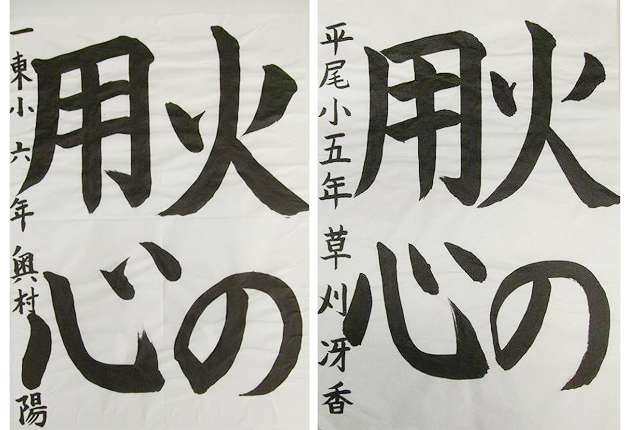 火の
用心
一東小 六年 奥村 陽
火の
用心
平尾小五年 草刈冴香